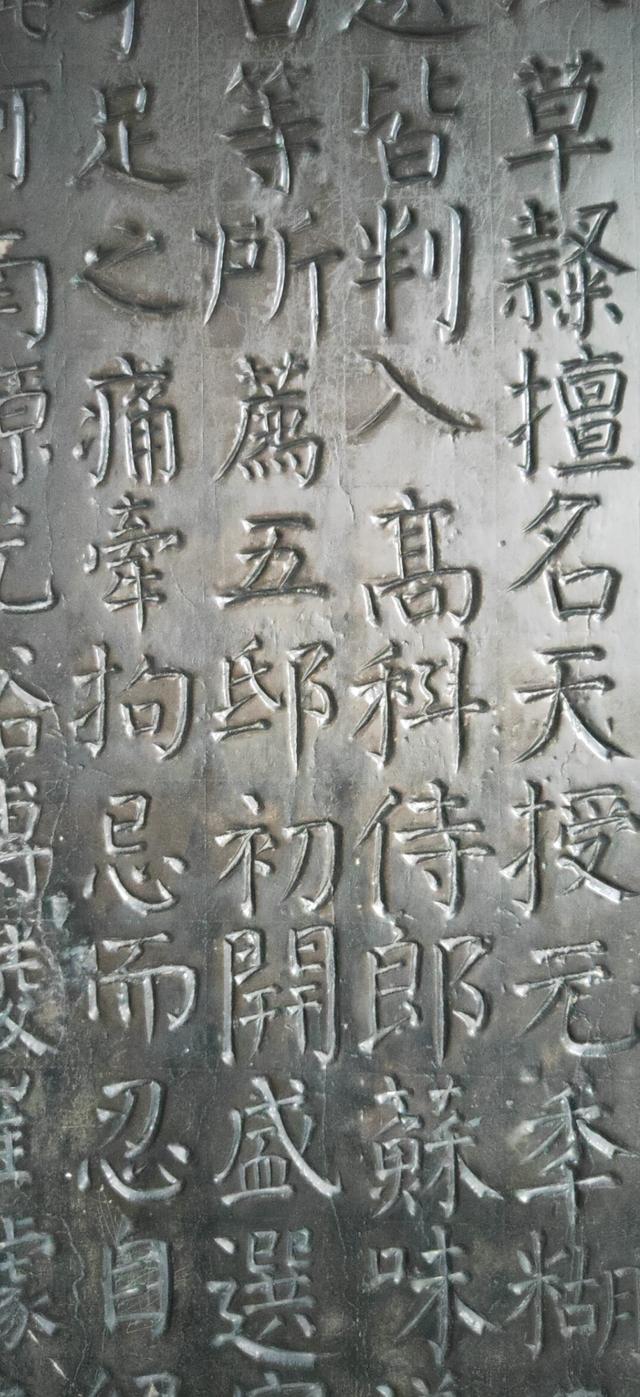 草隸擅名天授元秊糊
皆判入髙科侍郎蘇味
等所薦五邸初開盛選
足之痛牽拘忌而忍自